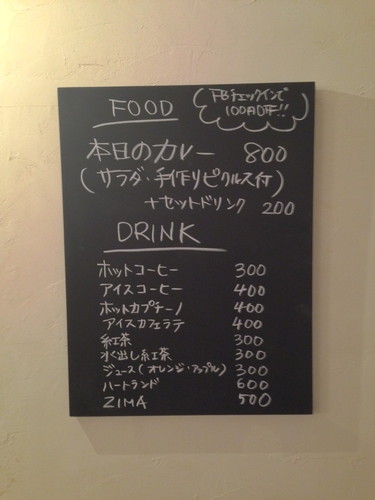 FOOD
FBチェックインで
100円OFF!!
本日のカレー 800
(サラダ・手作りピクルス付)
+セットドリンク 200
DRINK
ホットコーヒー 300
アイスコーヒー 400
ホットカプチーノ 400
アイスカフェラテ 400
紅茶 300
水出し紅茶 300
ジュース(オレンジ・アップル) 300
ハートランド 600
ZIMA 500